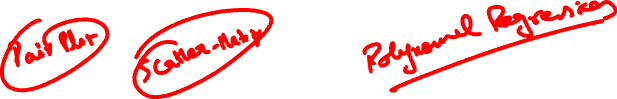 Pair Plot
Scatter-Matrix
Polynomial Regression